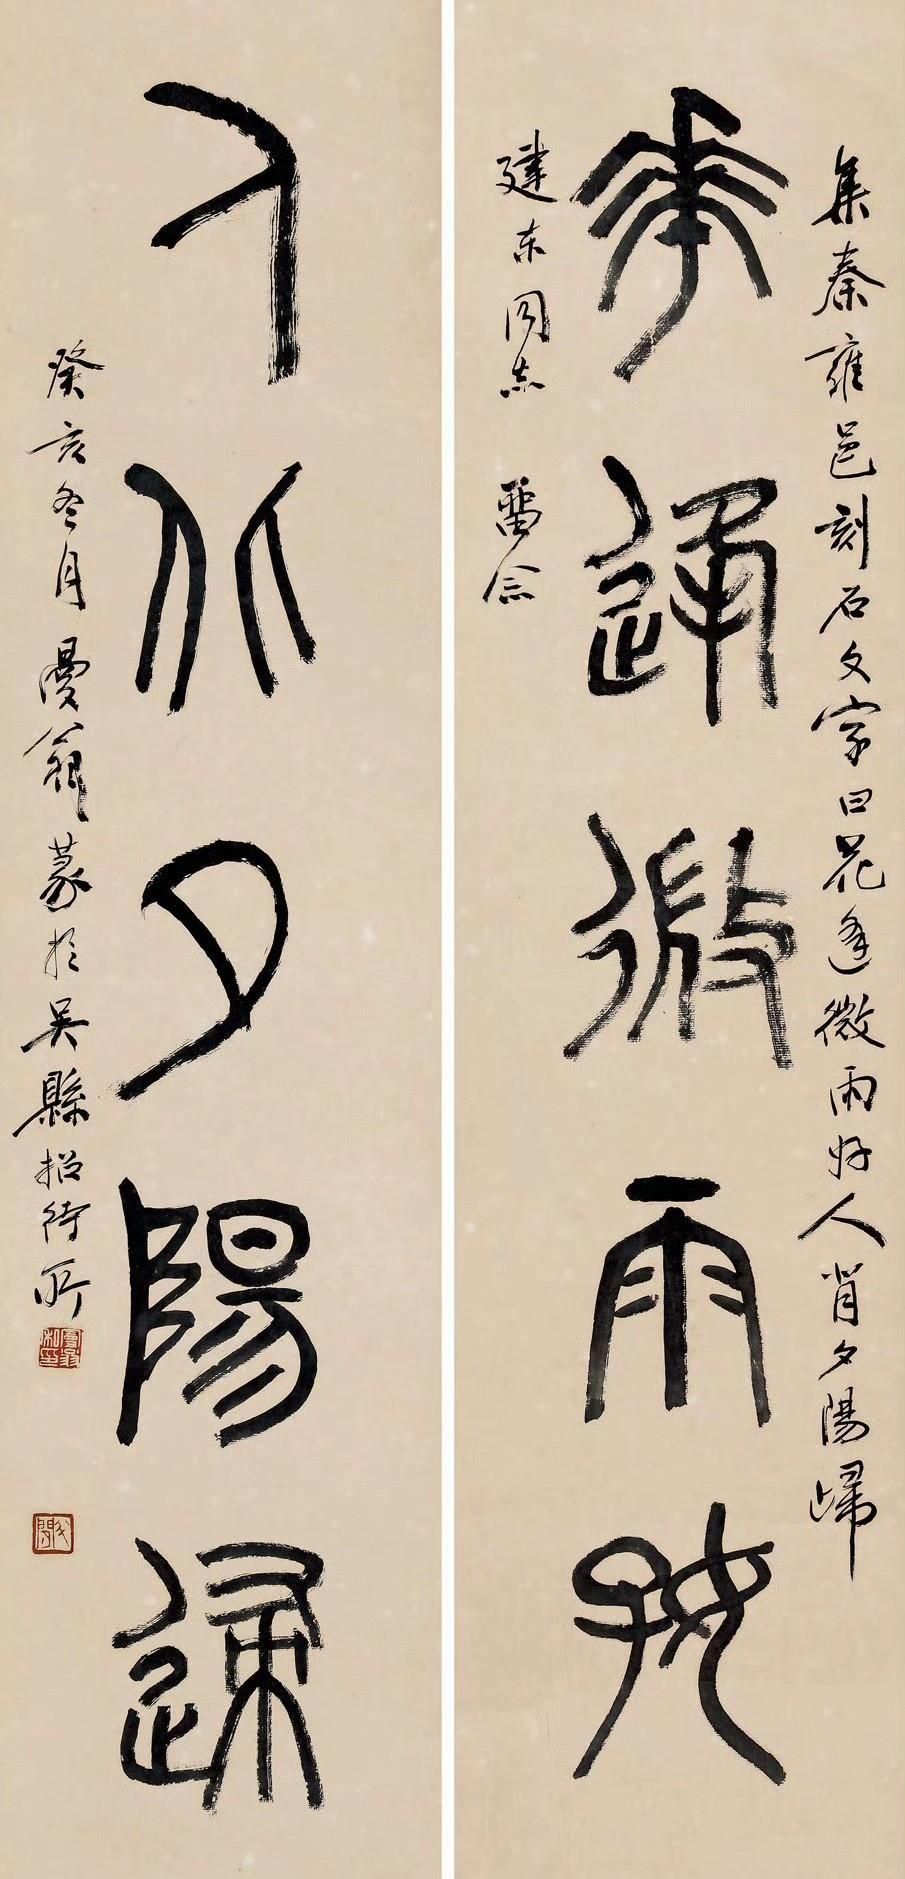 集秦雍邑刻石文字曰花逢微雨好人背夕陽歸
華逢微雨好
建东同志 畱念
人北夕陽歸
癸亥冬月漫翁篆於吴縣招待所